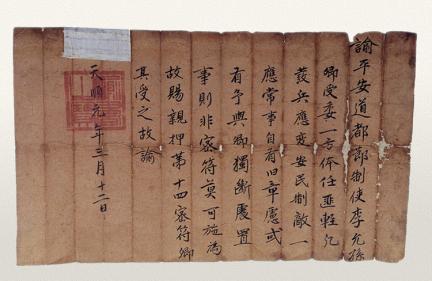 諭平安道都節制使李允孫
卿受委一方体任匪輕凡
發兵應變安民制敵一
應常事自有旧章慮或
有予與卿獨斷處置
事則非密符莫可施為
故賜親押第十四密符卿
其受之故諭
天順元年三月十二日